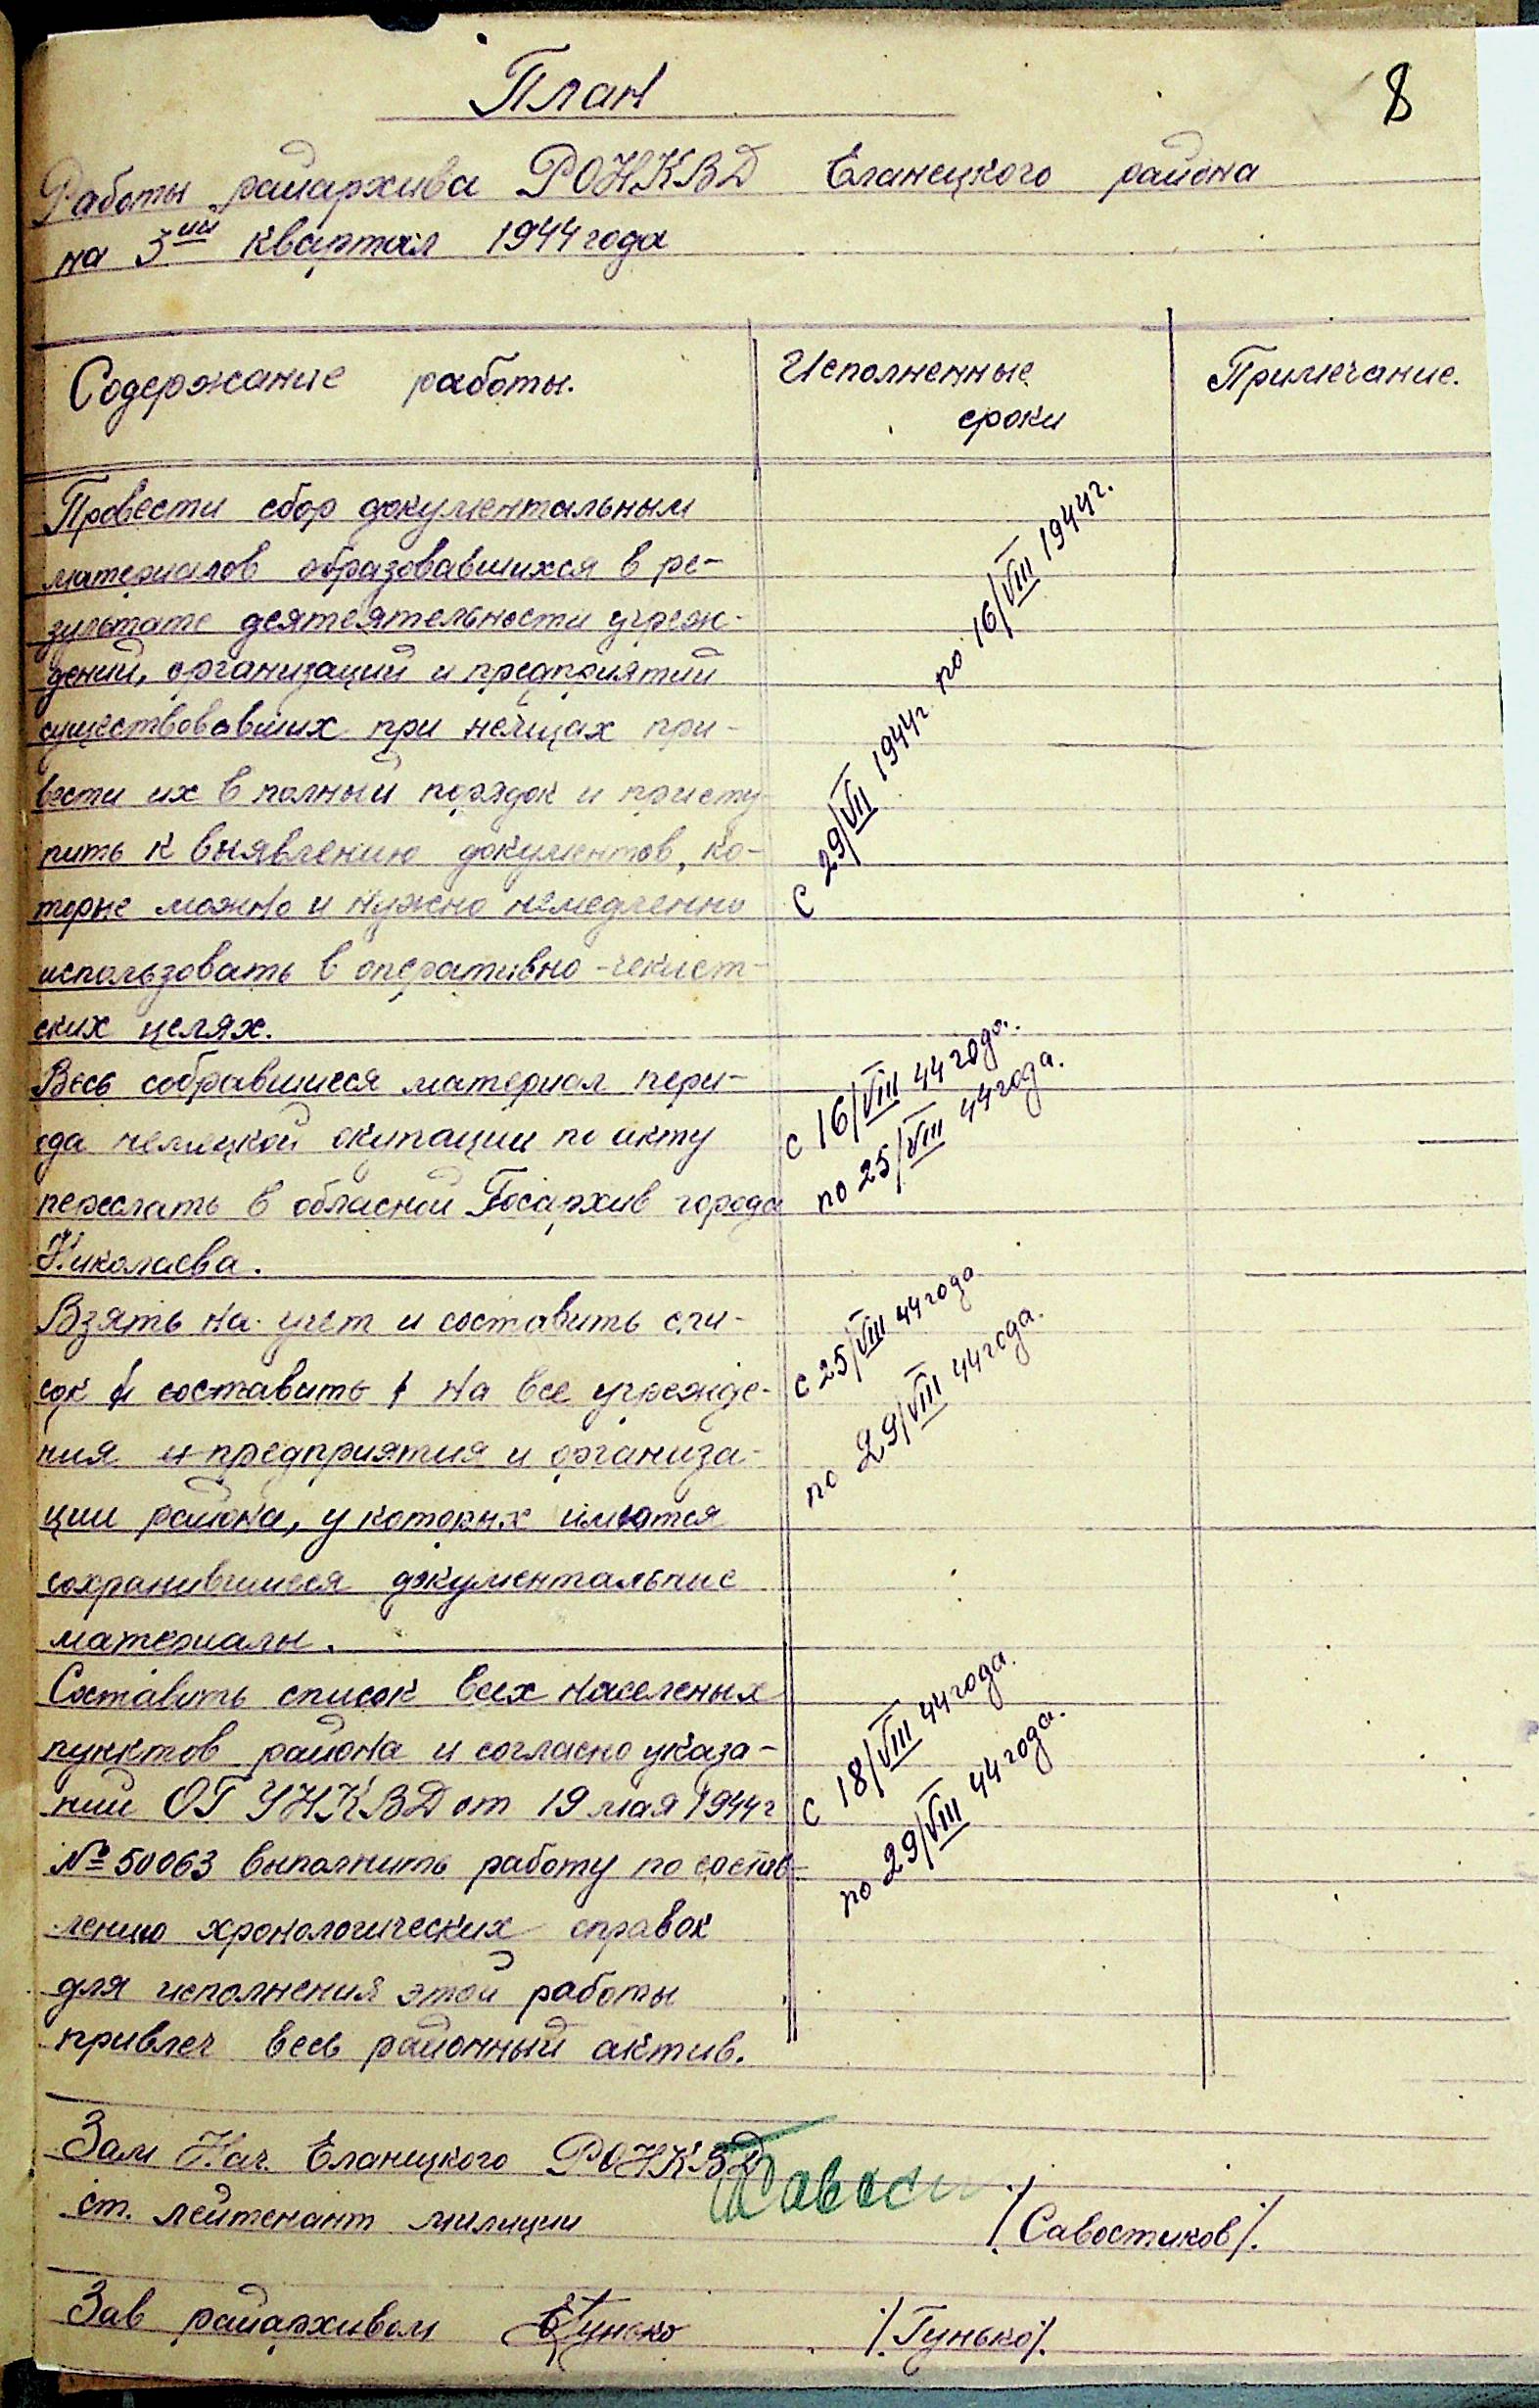 8
План
Работы райархива РОНКВД Еланецкого района
на 3ий квартал 1944 года
Содержание работы.
Исполненные
сроки
Примечание.
Провести сбор документальным
материалов образовавшихся в ре-
зультате деятеятельности учреж-
дений, организаций и предприятий
существовавших при немцах при-
вести их в полный порядок и присту
пить к выявлению документов, ко-
торые можно и нужно немедленно
использовать в оперативно-чекист-
ских целях.
с 29/VII 1944г. по 16/VIII 1944г.
Весь собравшиеся материал пери-
ода немецкой окупации по акту
переслать в обласной Госархив города
Николаева.
с 16/VIII 44 года.
по 25/VIII 44 года.
Взять на учет и составить спи-
сок и составить на все учрежде-
ния и предприятия и организа-
ции района, у которых имются
сохранившиеся документальные
материалы.
с 25/VIII 44 года
по 29/VIII 44 года.
Составить список всех населеных
пунктов района и согласно указа-
ний ОГ УНКВД от 19 мая 1944 г
№ 50063 выполнить работу по состав-
лению хронологических справок
для исполнения этой работы
привлеч весь районный актив.
с 18/VIII 44 года.
по 29/VIII 44 года.
Зам Нач. Еланецкого РОНКВД
ст. лейтенант милиции /Савостиков/.
Зав райархивом Гунько /Гунько/.